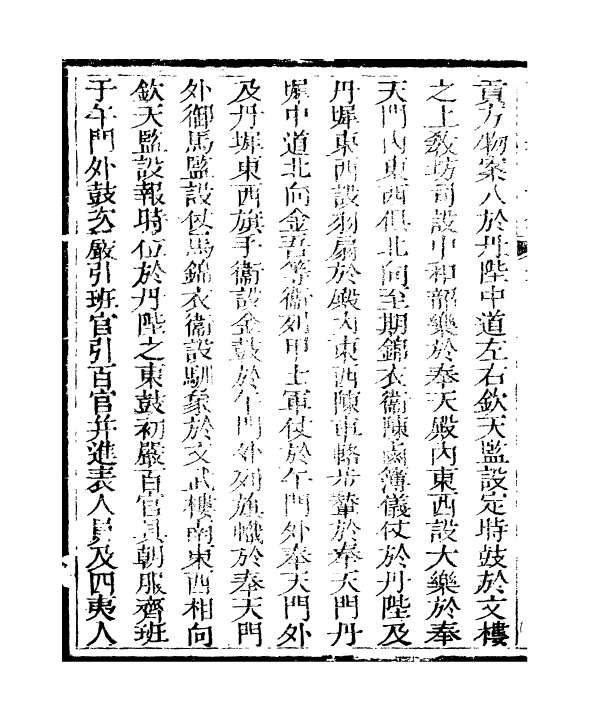 貢方物案八於丹陛中道左右欽天監設定時鼓於文樓
之上敎坊司設中和韶樂於奉天殿內東西設大樂於奉
天門內東西俱北向至期錦衣衞陳鹵簿儀仗於丹陛及
丹墀東西設羽扇於殿內東西陳車輅步輦於奉天門丹
墀中道北向金吾等衞列甲士軍仗於午門外奉天門外
及丹墀東西旗手衞設金鼓於午門外列旗幟於奉天門
外御馬監設仗馬錦衣衞設馴象於文武樓南東西相向
欽天監設報時位於丹陛之東鼓初嚴百官具朝服齊班
于午門外鼓次嚴引班官引百官幷進表人員及四夷人